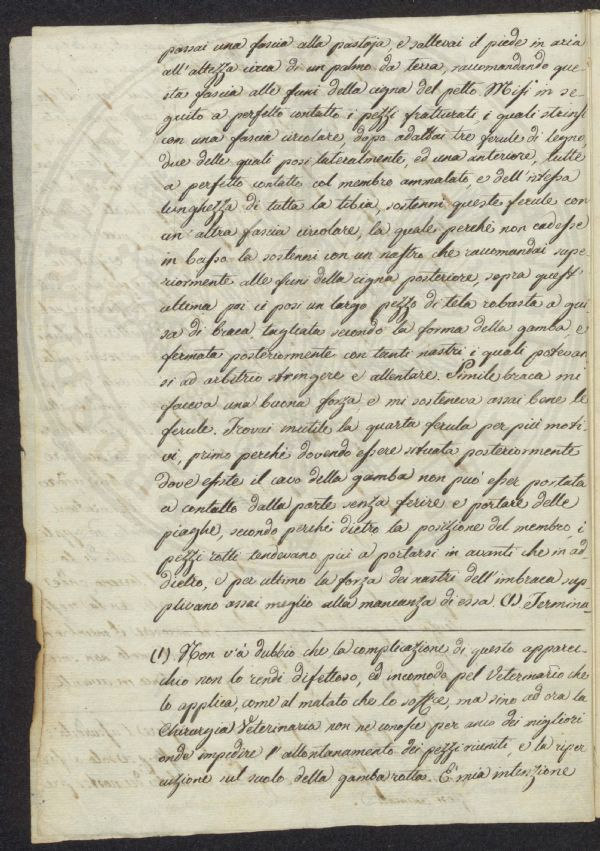 passai una fascia alla pastoja e sallevai il piede in aria
all'altezza circa di un palmo da terra, raccomandando que
sta fascia alle funi della cigna del petto. Misi in se
guito a perfetto contatto i pezzi fratturati, i quali strinsi
con una fascia circolare, dopo adattai tre ferule di legno,
due delle quali posi lateralmente, ed una anteriore, tutte
a perfetto contatto col membro ammalato, e dell'istessa
lunghezza di tutta la tibia, sostenni queste ferule con
un'altra fascia circolare, la quale perchè non cadesse
in basso la sostenni con un nastro che raccomandai supe
riormente alle funi della cigna posteriore, sopra quest'
ultima poi ci posi un largo pezzo di tela robusta a gui
sa di braca, tagliata secondo la forma della gamba e
fermata posteriormente con tanti nastri i quali potevan
si ad arbitrio stringere e allentare. Simile braca mi
faceva una buona forza e mi sosteneva assai bene le
ferule. Trovai inutile la quarta ferula per più moti
vi, primo perchè dovendo essere situata posteriormente
dove esiste il cavo della gamba non può esser portata
a contatto dalla parte senza ferire e portare delle
piaghe, secondo perchè dietro la posizione del membro, i
pezzi rotti tendevano più a portarsi in avanti che in ad
dietro, e per ultimo la forza dei nastri dell'imbraca sup
plivano assai meglio alla mancanza di essa. (1). Termina
(1) Non v'à dubbio che la complicazione di questo apparec
chio non lo rendi difettoso, ed incomodo pel Veterinario che
lo applica, come al malato che lo soffre, ma sino ad ora la
Chirurgia Veterinaria non ne conosce per anco dei migliori
onde impedire l'allontanamento dei pezzi riuniti, e la riper
cuzione sul suolo della gamba rotta. E' mia intenzione